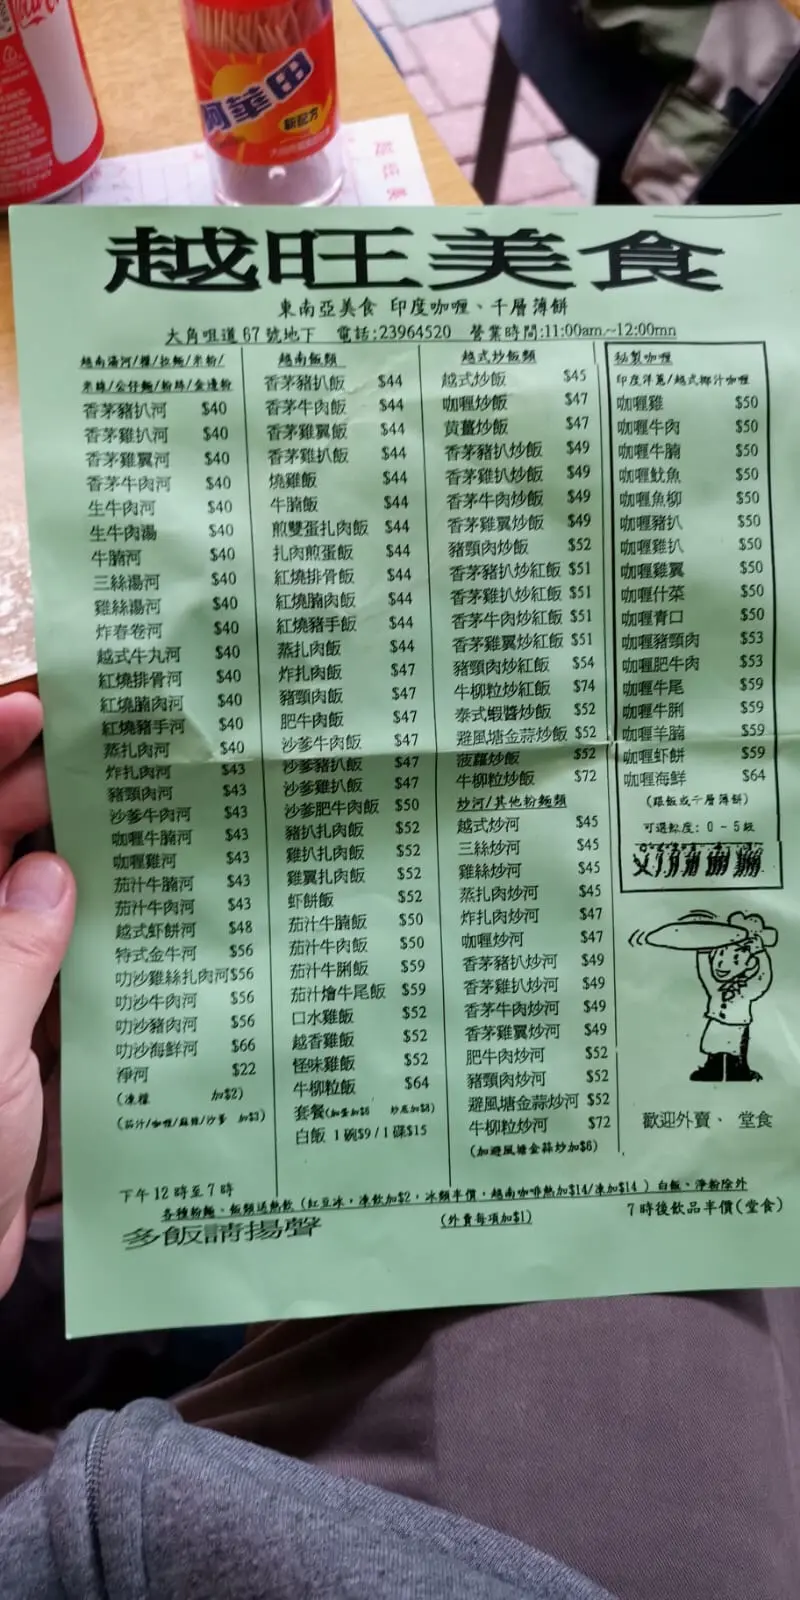 阿華田
新配方
越旺美食
東南亞美食 印度咖喱、千層薄餅
大角咀道 67 號地下 電話:23964520 營業時間:11:00am.~12:00mn
越南湯河/檬/拉麵/米粉/
米線/公仔麵/粉絲/金邊粉
香茅豬扒河 $40
香茅雞扒河 $40
香茅雞翼河 $40
香茅牛肉河 $40
生牛肉河 $40
生牛肉湯 $40
牛腩河 $40
三絲湯河 $40
雞絲湯河 $40
炸春卷河 $40
越式牛丸河 $40
紅燒排骨河 $40
紅燒腩肉河 $40
紅燒豬手河 $40
蒸扎肉河 $40
炸扎肉河 $43
豬頸肉河 $43
沙爹牛肉河 $43
咖喱牛腩河 $43
咖喱雞河 $43
茄汁牛腩河 $43
茄汁牛肉河 $43
越式虾餅河 $48
特式金牛河 $56
叻沙雞絲扎肉河$56
叻沙牛肉河 $56
叻沙豬肉河 $56
叻沙海鮮河 $66
淨河 $22
(凍檬 加$2)
(茄汁/咖喱/麻辣/沙爹 加$3)
越南飯類
香茅豬扒飯 $44
香茅牛肉飯 $44
香茅雞翼飯 $44
香茅雞扒飯 $44
燒雞飯 $44
牛腩飯 $44
煎雙蛋扎肉飯 $44
扎肉煎蛋飯 $44
紅燒排骨飯 $44
紅燒腩肉飯 $44
紅燒豬手飯 $44
蒸扎肉飯 $44
炸扎肉飯 $47
豬頸肉飯 $47
肥牛肉飯 $47
沙爹牛肉飯 $47
沙爹豬扒飯 $47
沙爹雞扒飯 $47
沙爹肥牛肉飯 $50
豬扒扎肉飯 $52
雞扒扎肉飯 $52
雞翼扎肉飯 $52
虾餅飯 $52
茄汁牛腩飯 $50
茄汁牛肉飯 $50
茄汁牛脷飯 $59
茄汁燴牛尾飯 $59
口水雞飯 $52
越香雞飯 $52
怪味雞飯 $52
牛柳粒飯 $64
套餐(加蛋加$6 炒底加$8)
白飯 1 碗$9 / 1 碟$15
越式炒飯類
越式炒飯 $45
咖喱炒飯 $47
黄薑炒飯 $47
香茅豬扒炒飯 $49
香茅雞扒炒飯 $49
香茅牛肉炒飯 $49
香茅雞翼炒飯 $49
豬頸肉炒飯 $52
香茅豬扒炒紅飯 $51
香茅雞扒炒紅飯 $51
香茅牛肉炒紅飯 $51
香茅雞翼炒紅飯 $51
豬頸肉炒紅飯 $54
牛柳粒炒紅飯 $74
泰式蝦醬炒飯 $52
避風塘金蒜炒飯 $52
菠蘿炒飯 $52
牛柳粒炒飯 $72
炒河/其他粉麵類
越式炒河 $45
三絲炒河 $45
雞絲炒河 $45
蒸扎肉炒河 $45
炸扎肉炒河 $47
咖喱炒河 $47
香茅豬扒炒河 $49
香茅雞扒炒河 $49
香茅牛肉炒河 $49
香茅雞翼炒河 $49
肥牛肉炒河 $52
豬頸肉炒河 $52
避風塘金蒜炒河 $52
牛柳粒炒河 $72
(加避風塘金蒜炒加$6)
秘製咖喱
印度洋蔥/越式椰汁咖喱
咖喱雞 $50
咖喱牛肉 $50
咖喱牛腩 $50
咖喱魷魚 $50
咖喱魚柳 $50
咖喱豬扒 $50
咖喱雞扒 $50
咖喱雞翼 $50
咖喱什菜 $50
咖喱青口 $50
咖喱豬頸肉 $53
咖喱肥牛肉 $53
咖喱牛尾 $59
咖喱牛脷 $59
咖喱羊腩 $59
咖喱虾餅 $59
咖喱海鮮 $64
(跟飯或千層薄餅)
可選辣度: 0 - 5 級
歡迎外賣、 堂食
下午 12 時至 7 時
各種粉麵、飯類送熱飲 (紅豆冰，凍飲加$2，冰類半價，越南咖啡熱加$14/凍加$14 ) 白飯、淨粉除外
多飯請揚聲
(外賣每項加$1)
7 時後飲品半價(堂食)